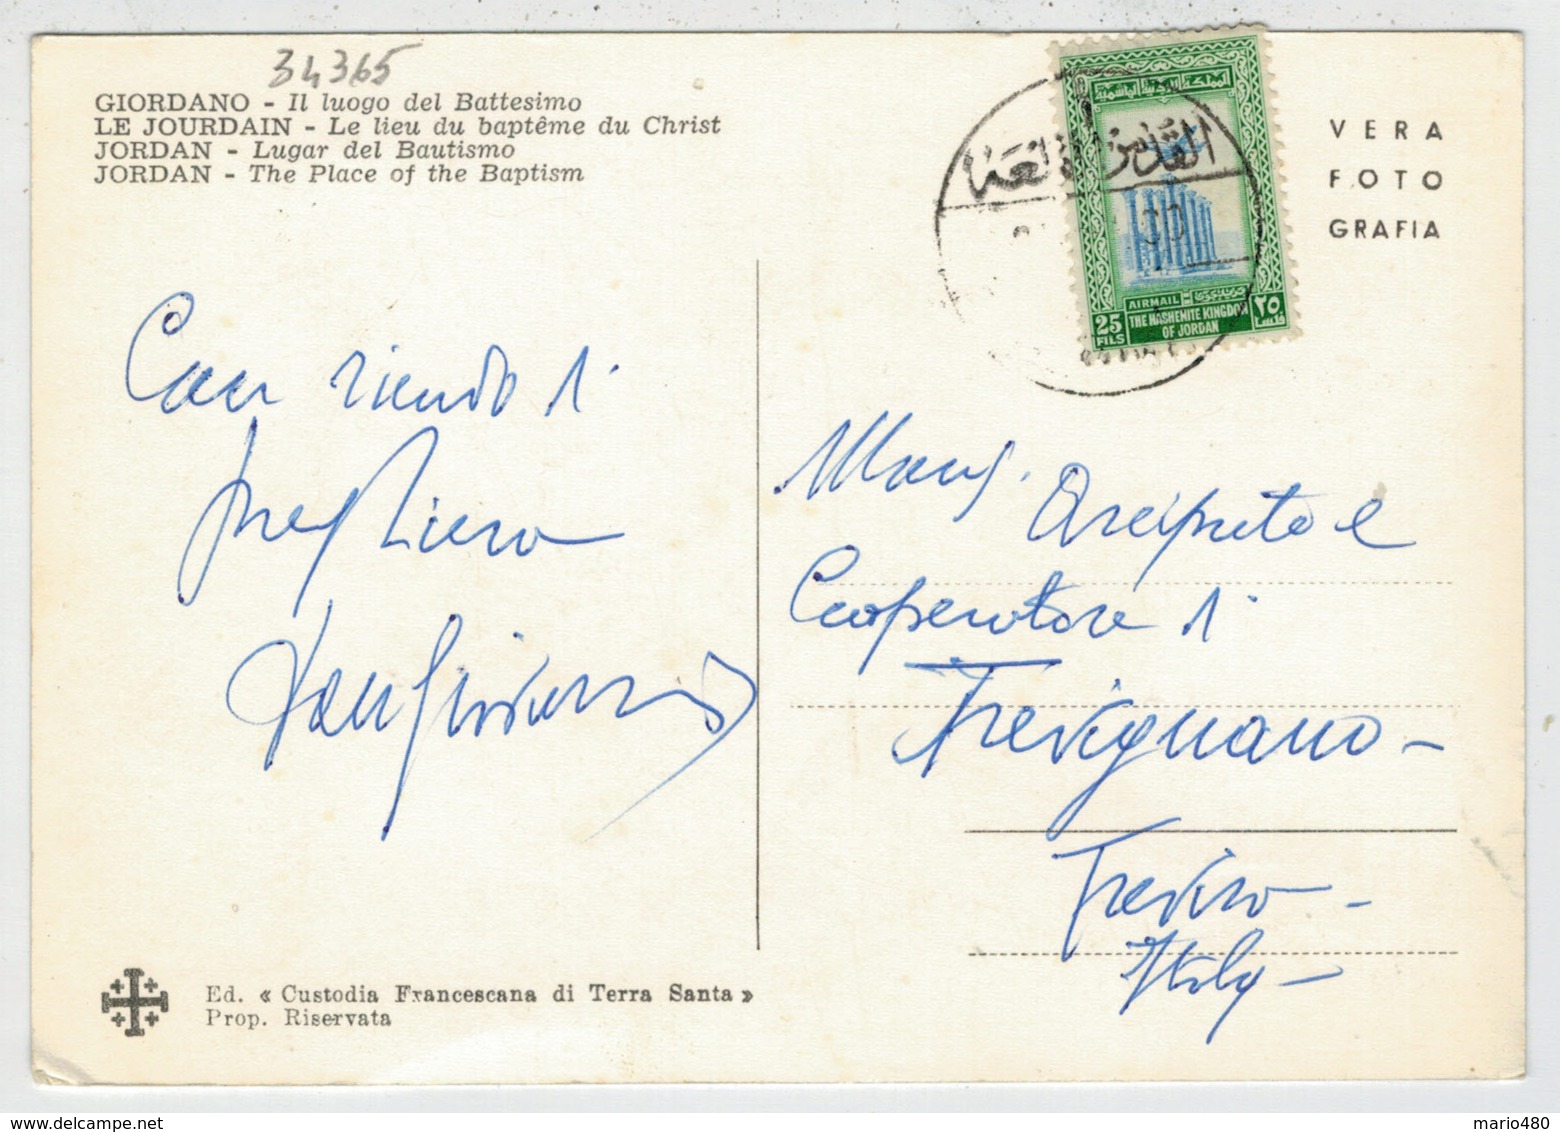 34365
GIORDANO - Il luogo del Battesimo
LE JOURDAIN - Le lieu du baptême du Christ
JORDAN - Lugar del Bautismo
JORDAN - The Place of the Baptism
VERA
FOTO
GRAFIA
المملكة الاردنية الهاشمية
القدس
AIRMAIL
25
FILS
THE HASHEMITE KINGDOM
OF JORDAN
٢٥
فلس
Con ricordo d.
preghiera
Mons. Arciprete e
Cooperatore d.
Trevignano -
Treviso -
Italy -
Ed. « Custodia Francescana di Terra Santa »
Prop. Riservata
mario480